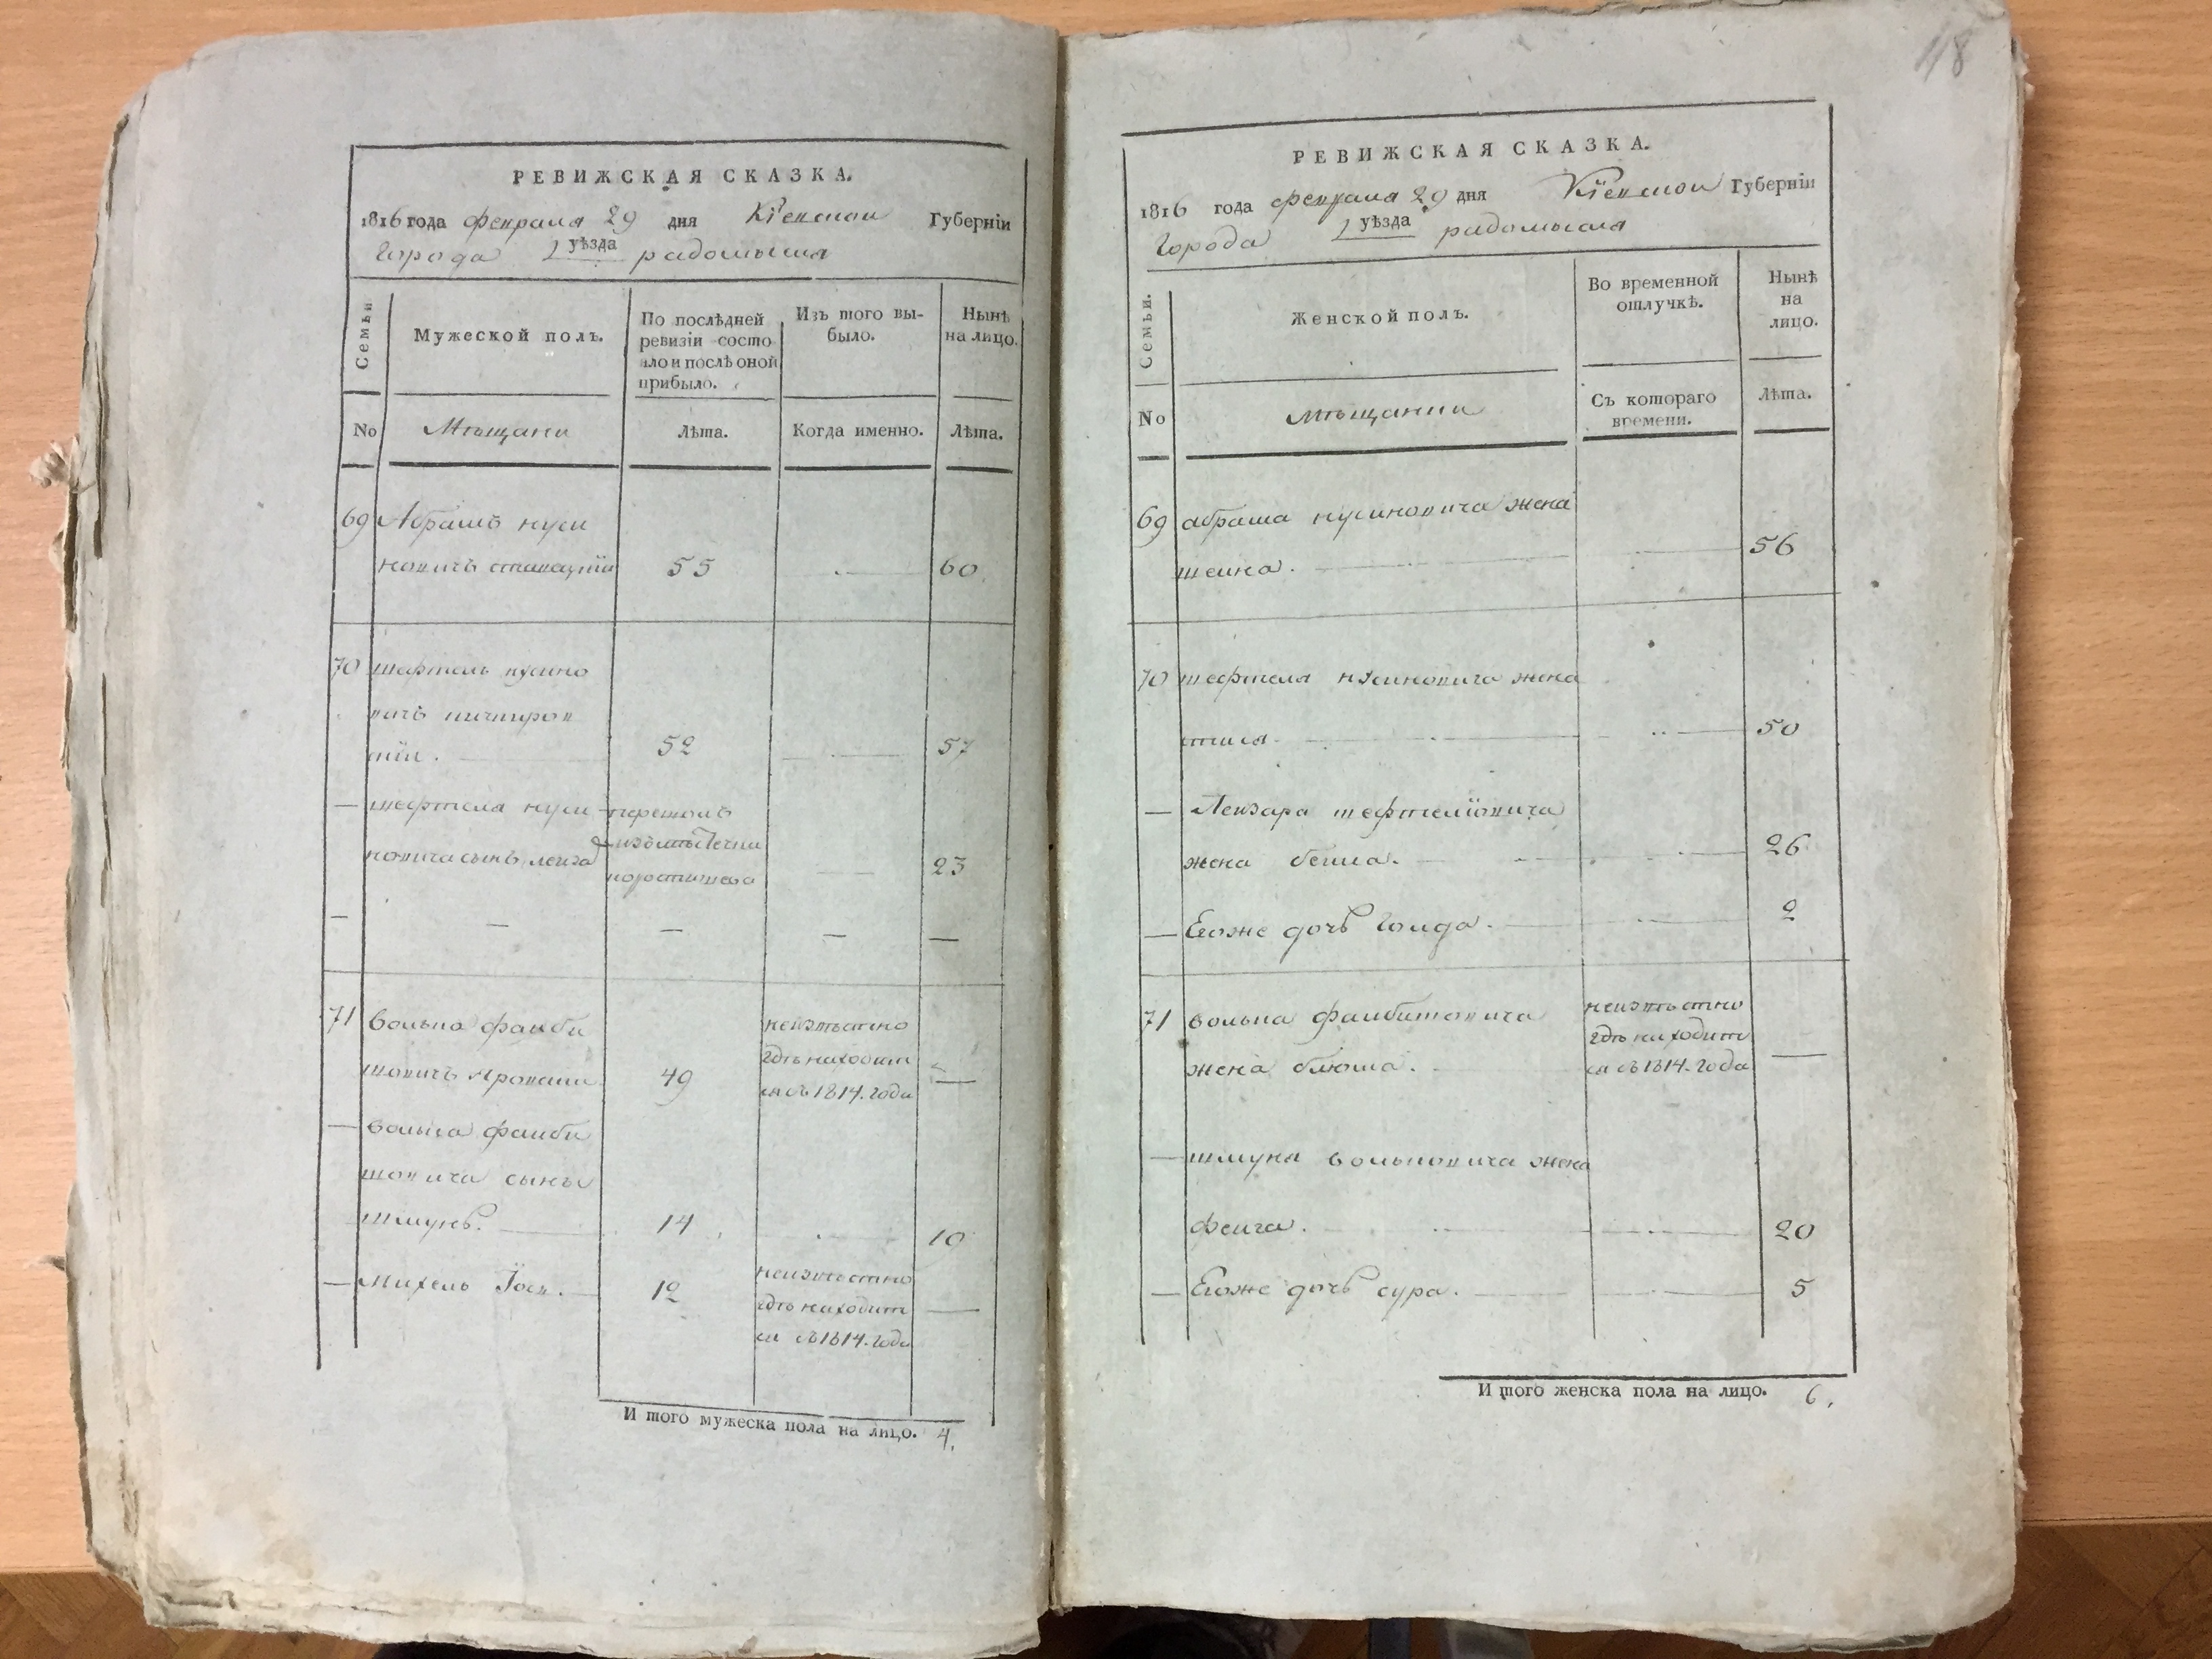 РЕВИЖСКАЯ СКАЗКА.
1816 года февраля 29 дня Кіевской Губерніи
Города уѣзда радомысля
Семьи
Мужеской полъ.
По послѣдней
ревизіи состо
яло и послѣ оной
прибыло.
Изъ того вы-
было.
Нынѣ
на лицо.
No
Мѣщани
Лѣта.
Когда именно.
Лѣта.
69 Абрашъ нуси
новичъ 55 60
70 шефтель нусино
вичъ
52 57
— шефтеля нуси
новича сынъ лейза 23
— — — — —
71 вольна файби
шовичъ 49 неизвѣстно
гдѣ находит
ся съ 1814. года —
— вольна файби
шовича сынъ
шмунъ. 14 10
— Михель Іосъ. 12 неизвѣстно
гдѣ находит
ся съ 1814. года —
И того мужеска пола на лицо. 4.
118
РЕВИЖСКАЯ СКАЗКА.
1816 года февраля 29 дня Кіевской Губерніи
Города уѣзда радомысля
Семьи.
Женской полъ.
Во временной
отлучкѣ.
Нынѣ
на
лицо.
No
мѣщанки
Съ котораго
времени.
Лѣта.
69 абраша нусиновича жена
шейна. 56
70 шефтеля нусиновича жена
50
— Лейзара шефтелiовича
жена бейла. 26
— Егоже дочь голда. 2
71 вольна файбишовича
жена блюма. неизвѣстно
гдѣ находит
ся съ 1814. года —
— шмуня вольновича жена
фейга. 20
— Егоже дочь сура. 5
И того женска пола на лицо. 6.